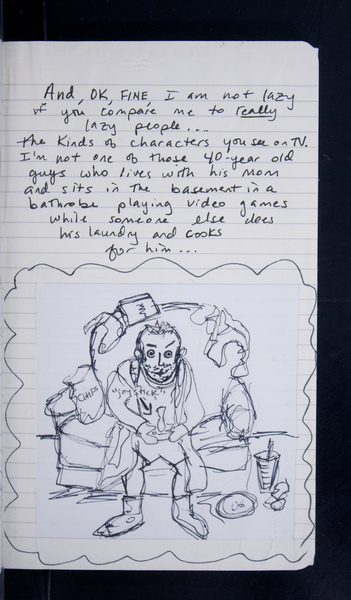 And, OK, FINE, I am not lazy
if you compare me to really
lazy people....
the kinds of characters you see on TV.
I'm not one of those 40-year old
guys who lives with his mom
and sits in the basement in a
bathrobe playing video games
while someone else does
his laundry and cooks
for him...
CHIPS
"joystick"